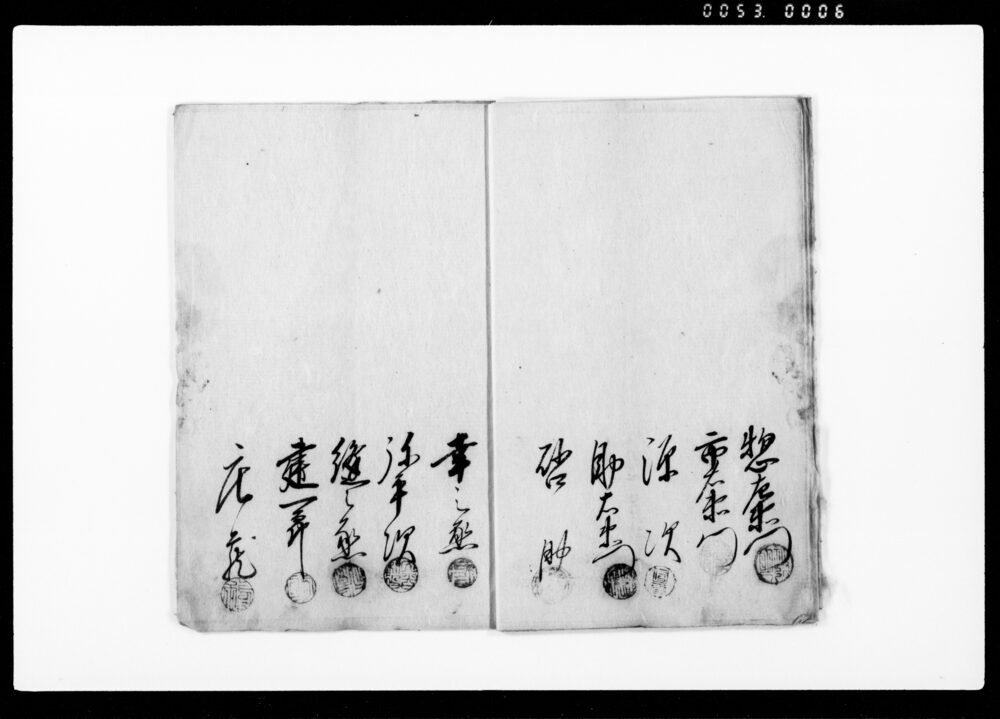 0053. 0006
惣左衛門
市右衛門
源次
助右衛門
啓助
幸之丞
弥平次
縫之丞
庄蔵